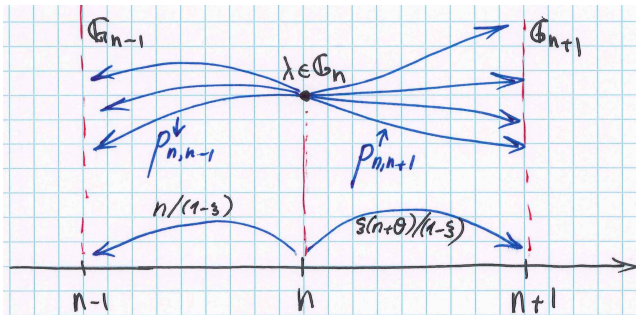 𝔾n-1
𝔾n+1
λ∈𝔾n
p↓n,n-1
p↑n,n+1
n/(1-ξ)
ξ(n+θ)/(1-ξ)
n-1
n
n+1